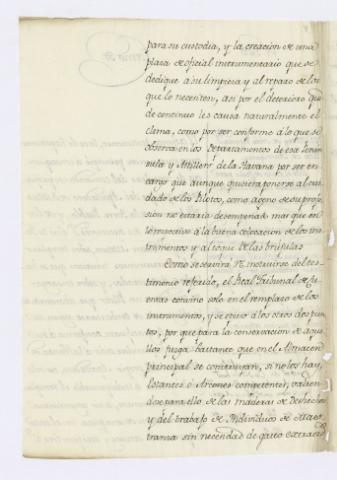 para su custodia, y la creacion de una
plaza de oficial instrumentario que se
dedique a su limpieza y al reparo de los
que lo necesiten, asi por el deterioro que
de continuo les causa naturalmente el
clima, como por ser conforme á lo que se
observa en los Departamentos de esa Penin
sula y de la Havana por ser en
cargo que aunque quisiera ponerse al cui
dado de los Pilotos, como ageno de su profe
sion no estaria desempeñado mas que en
lo respectivo á la buena colocacion de los ins
trumentos y al toque de las brujulas.
Como se servirá VE instruirse del tes
timonio referido, el Real Tribunal de Cu
entas convino solo en el remplazo de los
instrumentos, y se opuso á los otros dos pun
tos, por que para la conservacion de aque
llos juzga bastante que en el Almacen
principal se construyan, si no los hay,
los estantes ó Arcones competentes, valien
dose para ello de las maderas de Deshecho
y del trabajo de Individuos de Maes
tranza sin necesidad de gasto extraord